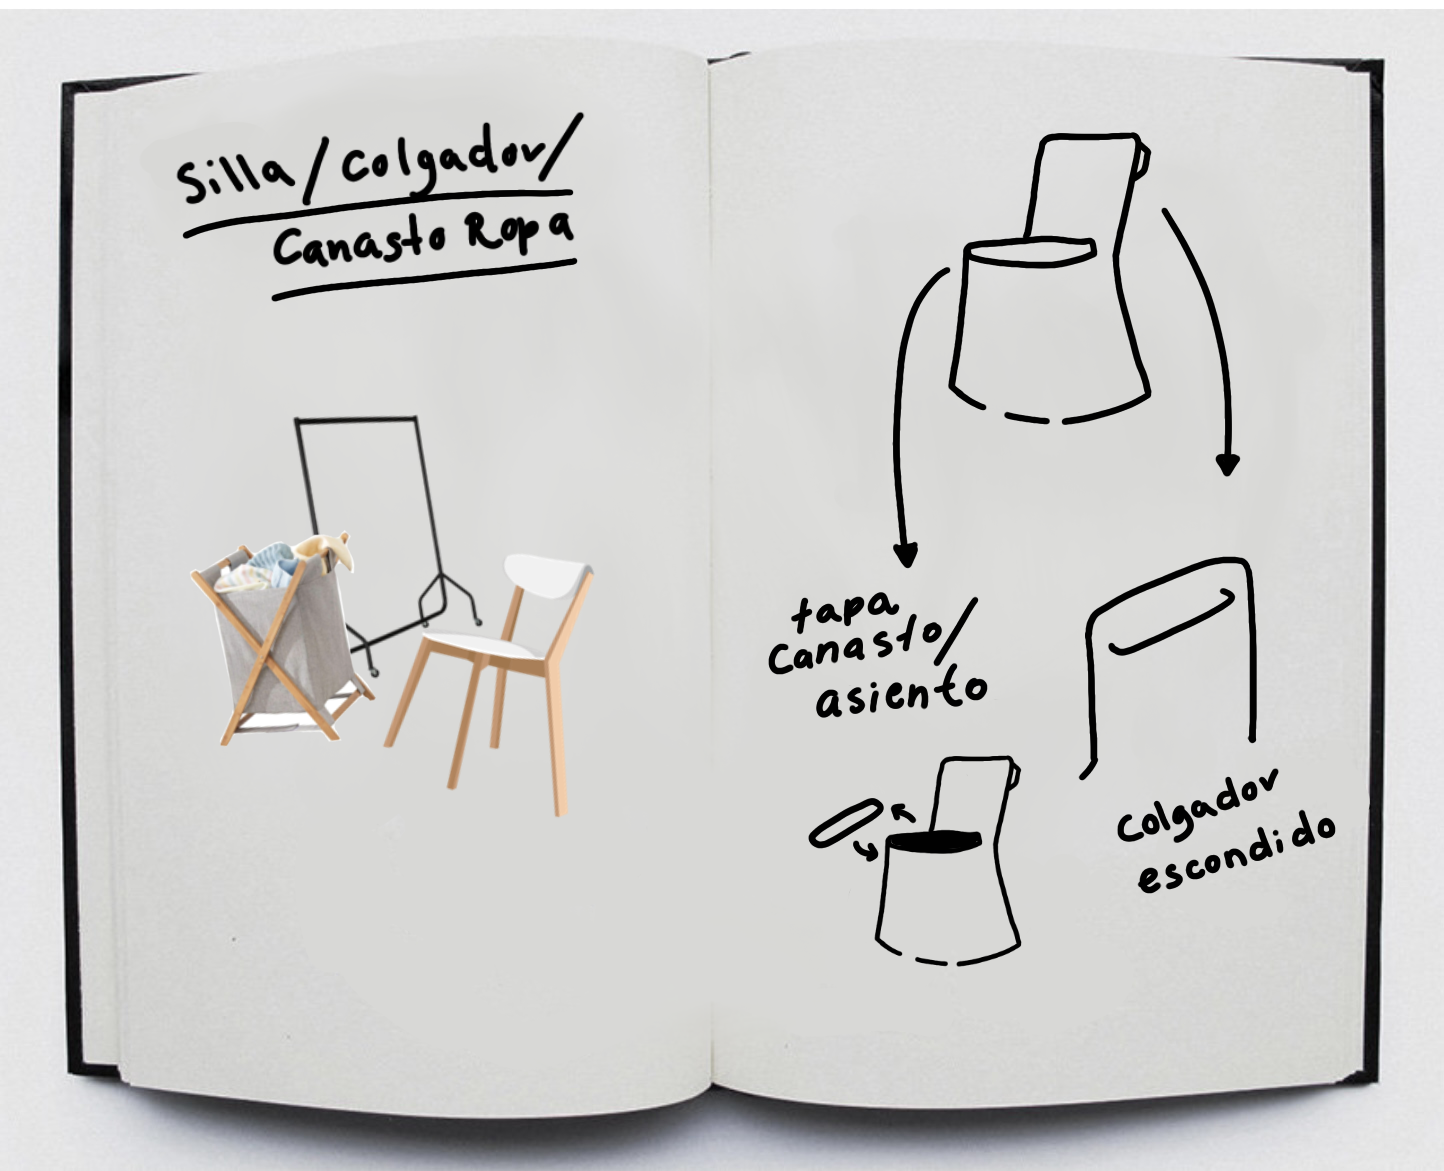 Silla/Colgador/
Canasto Ropa
tapa
Canasto/
asiento
Colgador
escondido